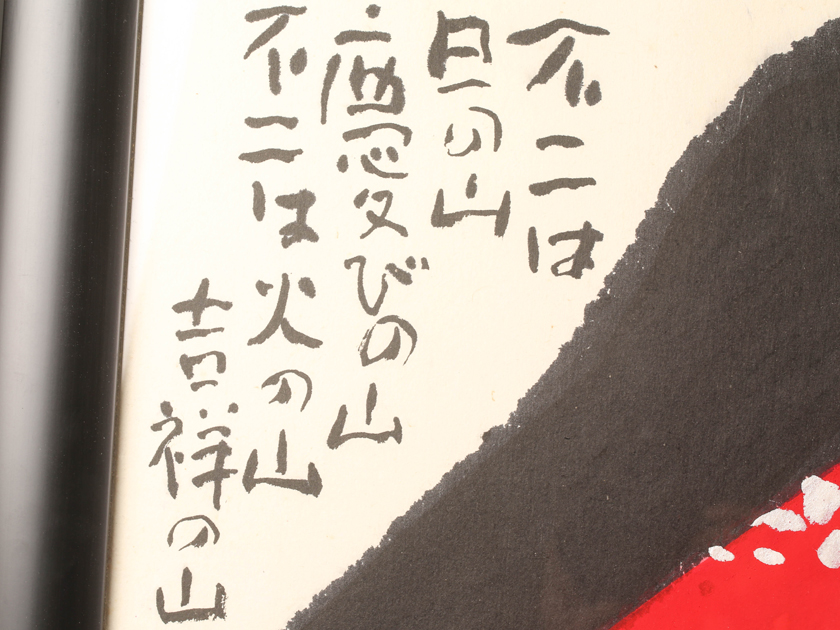 不二は
日の山
慶びの山
不二は火の山
吉祥の山